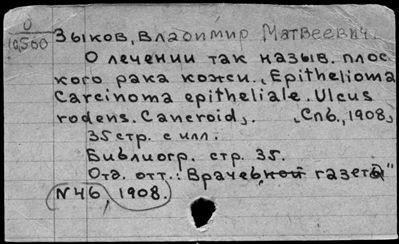 0
10,500
Зыков, Владимир Матвеевич.
О лечении так назыв. плос
кого рака кожи. „Epithelioma
Carcinoma epitheliale. Ulcus
rodens. Cancroid„. „Спб., 1908„
35 стр. с илл.
Библиогр. стр. 35.
Отд. отт.: Врачебной газеты"
N46, 1908.